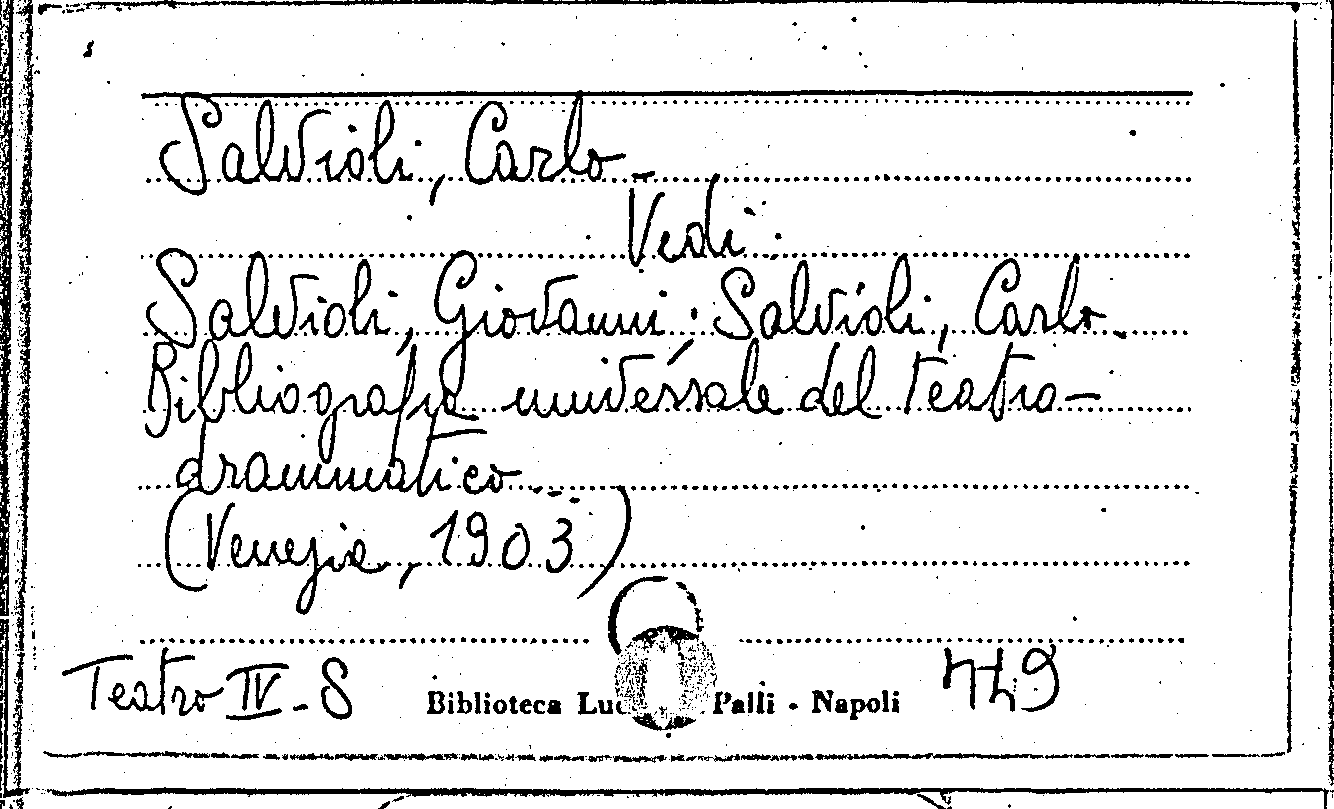 Salvioli, Carlo –
Vedi:
Salvioli, Giovanni; Salvioli, Carlo.
Bibliografia universale del teatro
drammatico...
(Venezia, 1903)
Teatro IV - 8 Biblioteca Palli - Napoli